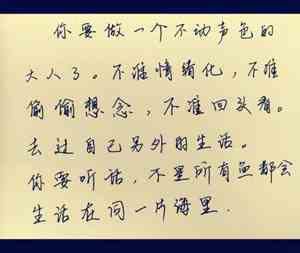 你要做一个不动声色的
大人了。不准情绪化，不准
偷偷想念，不准回头看。
去过自己另外的生活。
你要听话，不是所有鱼都会
生活在同一片海里.